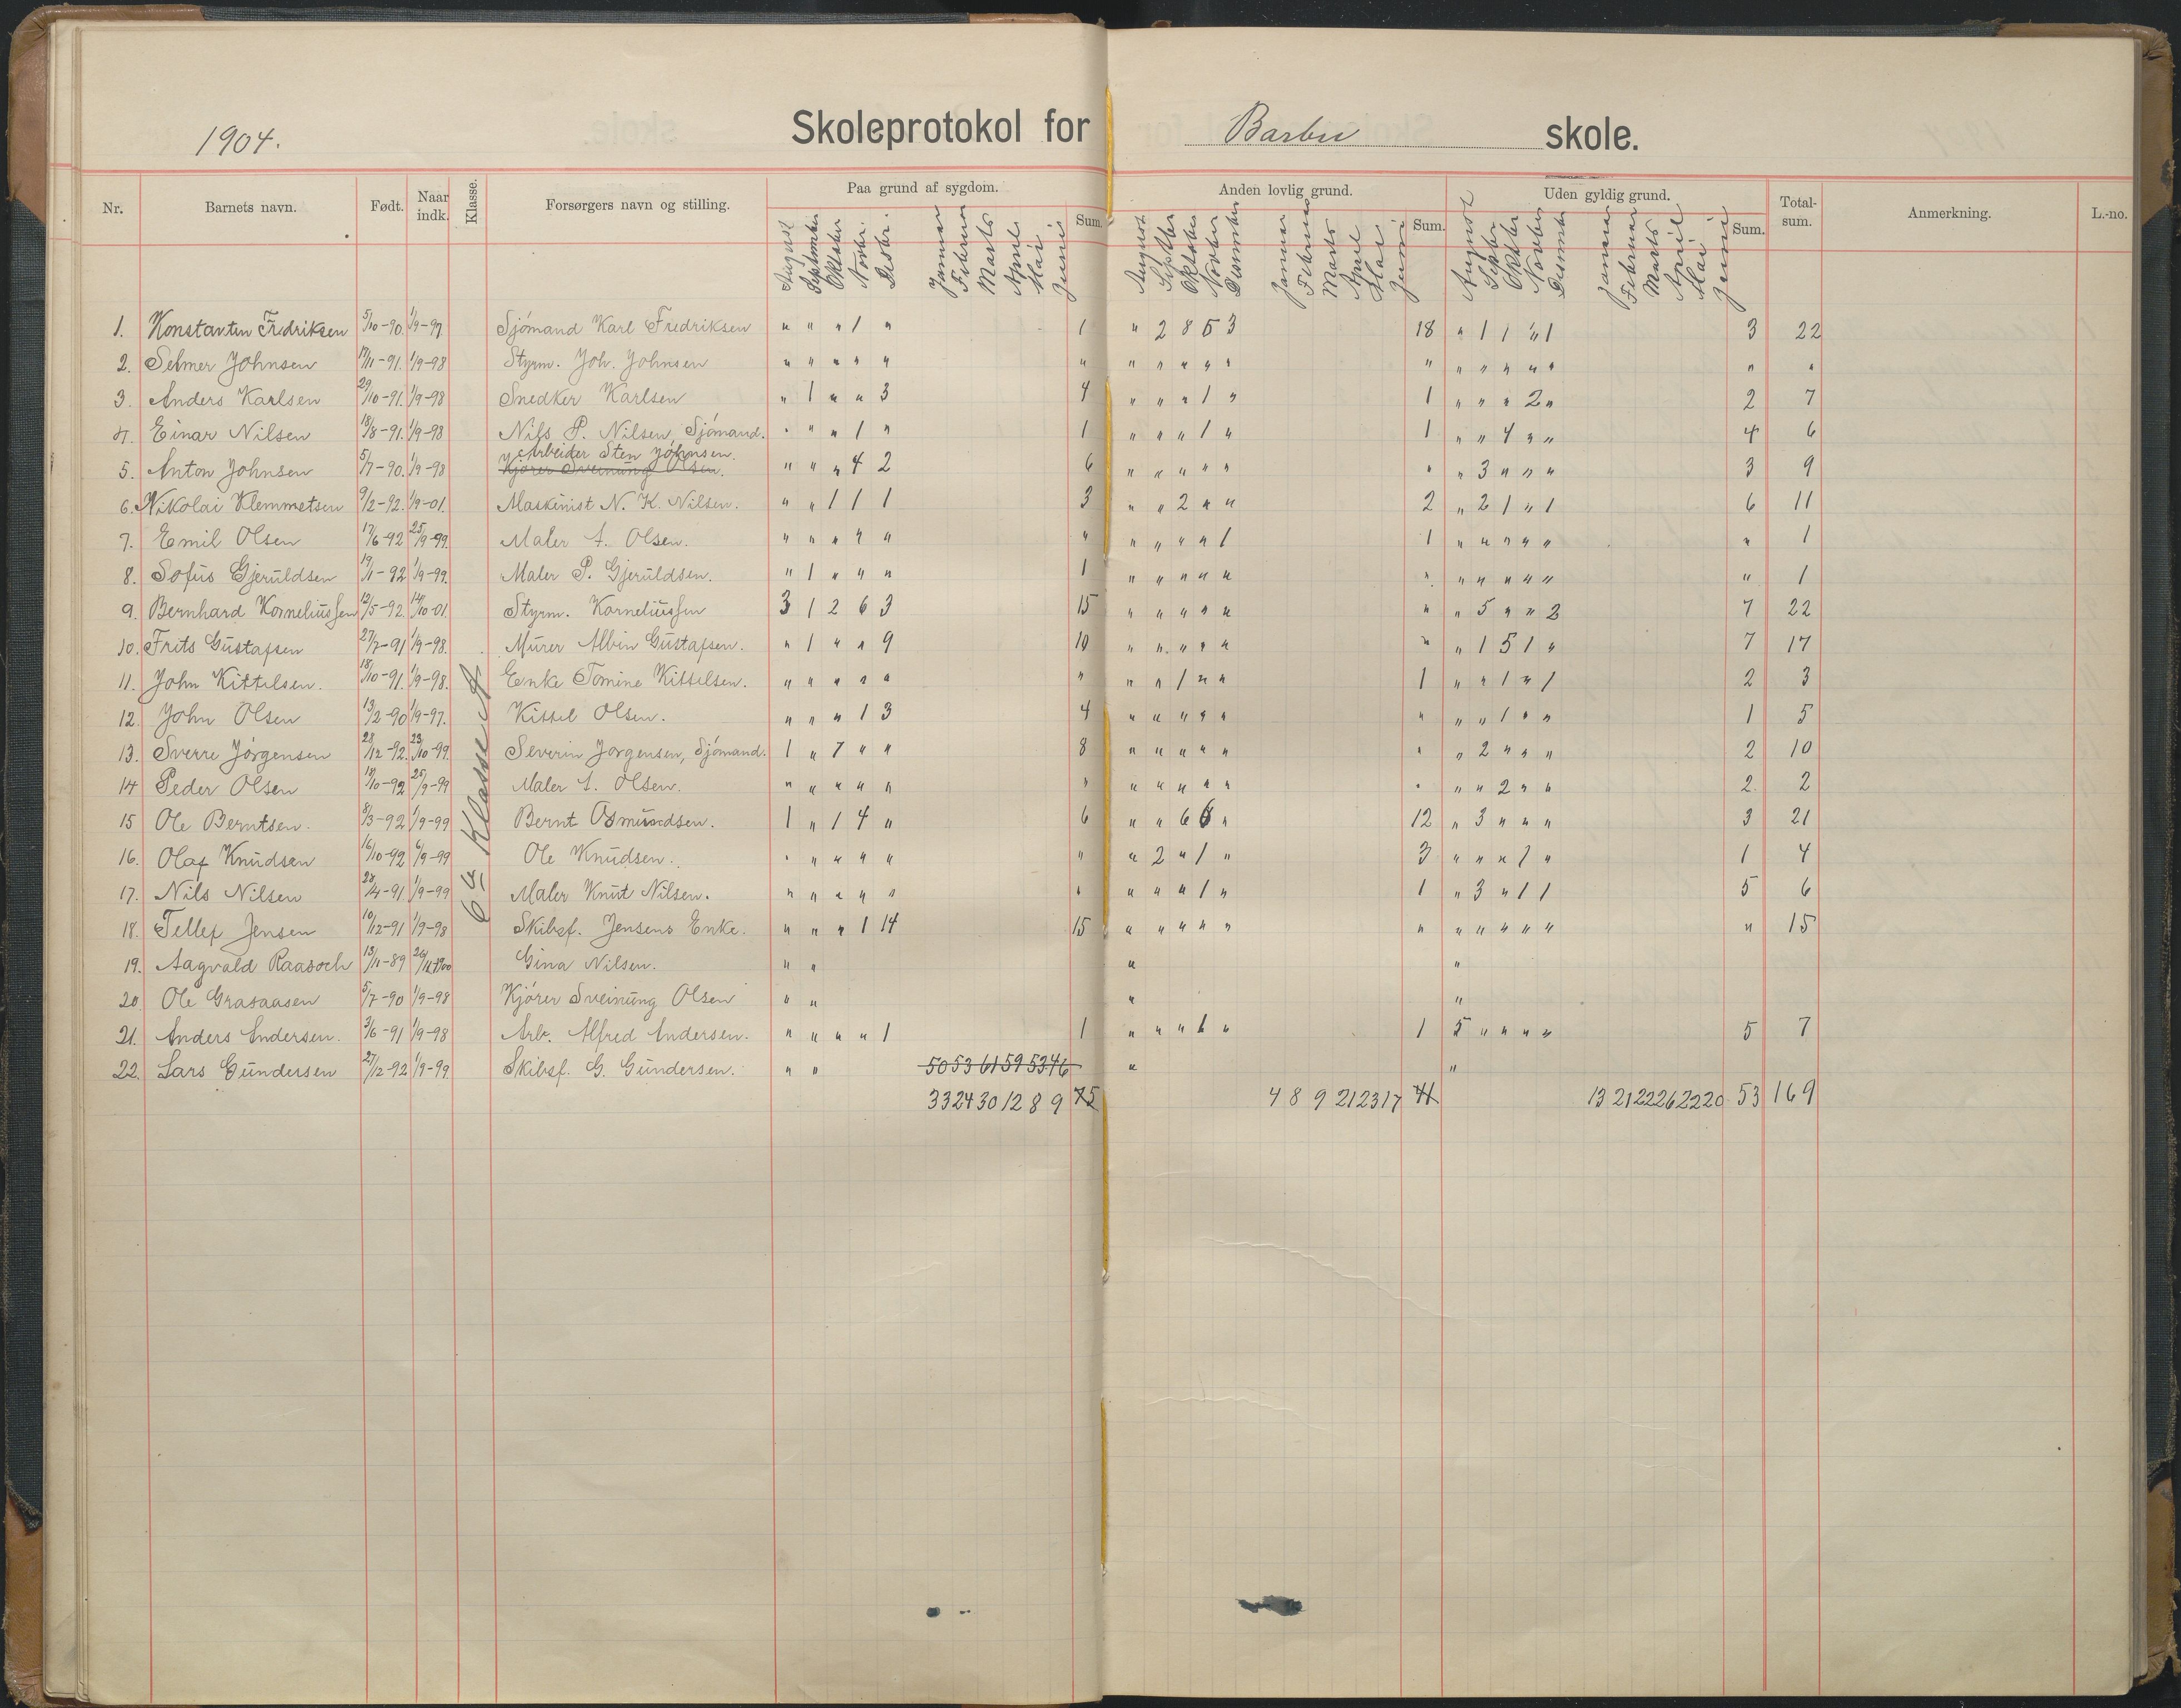 1904. Skoleprotokol for Barbu skole.
Nr. Barnets navn. Født. Naar indk. Klasse. Forsørgers navn og stilling. Paa grund af sygdom. Sum. Anden lovlig grund. Sum. Uden gyldig grund. Sum. Total-sum. Anmerkning. L.-no.
August September Oktober Novbr. Desbr. Januar Februar Marts April Mai Juni August Septbr Oktober Novber Desember Januar Februar Marts April Mai Juni August Septbr Oktber Novber Desember Januar Februar Marts April Mai Juni
1. Konstantin Fredriksen 5/10-90. 1/9-97 Sjómand Karl Fredriksen " " " 1 " 1 " 2 8 5 3 18 " 1 1 " 1 3 22
2. Selmer Johnsen 17/11-91. 1/9-98 Styrm. Joh. Johnsen " " " " " " " " " " " " " " " " " " "
3. Anders Karlsen 29/10-91. 1/9-98 Snedker Karlsen " 1 " " 3 4 " " " 1 " 1 " " " 2 " 2 7
4. Einar Nilsen 18/8-91. 1/9-98 Nils P. Nilsen, Sjómand. " " " 1 " 1 " " " 1 " 1 " " 4 " " 4 6
5. Anton Johnsen 5/7-90. 1/9-98 Arbeider Sten Johnsen. Kjører Sveinung Olsen. " " " 4 2 6 " " " " " " " 3 " " " 3 9
6. Nikolai Klemmetsen 9/2-92. 1/9-01. Maskinist N. K. Nilsen. " " 1 1 1 3 " " 2 " " 2 " 2 1 " 1 6 11
7. Emil Olsen 17/6-92 25/9-99. Maler A. Olsen. " " " " " " " " " " 1 1 " " " " " " 1
8. Sofus Gjeruldsen 19/1-92 1/9-99. Maler P. Gjeruldsen. " 1 " " " 1 " " " " " " " " " " " " 1
9. Bernhard Korneliussen 12/5-92. 14/10-01 Styrm. Korneliussen 3 1 2 6 3 15 " " " " " " " 5 " " 2 7 22
10. Frits Gustafsen 27/7-91 1/9-98. Murer Albin Gustafsen. " 1 " " 9 10 " " " " " " " 1 5 1 " 7 17
11. John Kittelsen. 18/10-91. 1/9-98. Enke Tomine Kittelsen. " " " " " " " " 1 " " 1 " " 1 " 1 2 3
12. John Olsen 13/2-90 1/9-97. Kittel Olsen. " " " 1 3 4 " " " " " " " " 1 " " 1 5
13. Sverre Jórgensen 28/12-92. 23/10-99. Severin Jorgensen, Sjómand. 1 " 7 " " 8 " " " " " " " 2 " " " 2 10
14 Peder Olsen 18/10-92 25/9-99 Maler A. Olsen. " " " " " " " " " " " " " " 2 " " 2. 2
15 Ole Berntsen. 8/3-92 1/9-99 Bernt Osmundsen. 1 " 1 4 " 6 " " 6 6 " 12 " 3 " " " 3 21
16. Olaf Knudsen 16/10-92 6/9-99 Ole Knudsen. " " " " " " " 2 " 1 " 3 " " " 1 " 1 4
17. Nils Nilsen 28/4-91 1/9-99 Maler Knut Nilsen. " " " " " " " " " 1 " 1 " 3 " 1 1 5 6
18. Tellef Jensen 10/12-91 1/9-98 Skibsf. Jensens Enke. " " " 1 14 15 " " " " " " " " " " " " 15
19. Aagvald Raasoch 13/11-89 26/11-1900 Gina Nilsen. " " " "
20. Ole Grasaasen 5/7-90 1/9-98 Kjórer Sveinung Olsen " " " "
21. Anders Andersen. 3/6-91 1/9-98 Arb. Alfred Andersen. " " " " 1 1 " " " 1 " 1 5 " " " " 5 7
22. Lars Gundersen 27/12-92 1/9-99 Skibsf. G. Gundersen. " " 50 53 61 59 53 46 " "
6te Klasse A
33 24 30 12 8 9 75 4 8 9 21 23 17 41 13 21 22 26 22 20 53 169